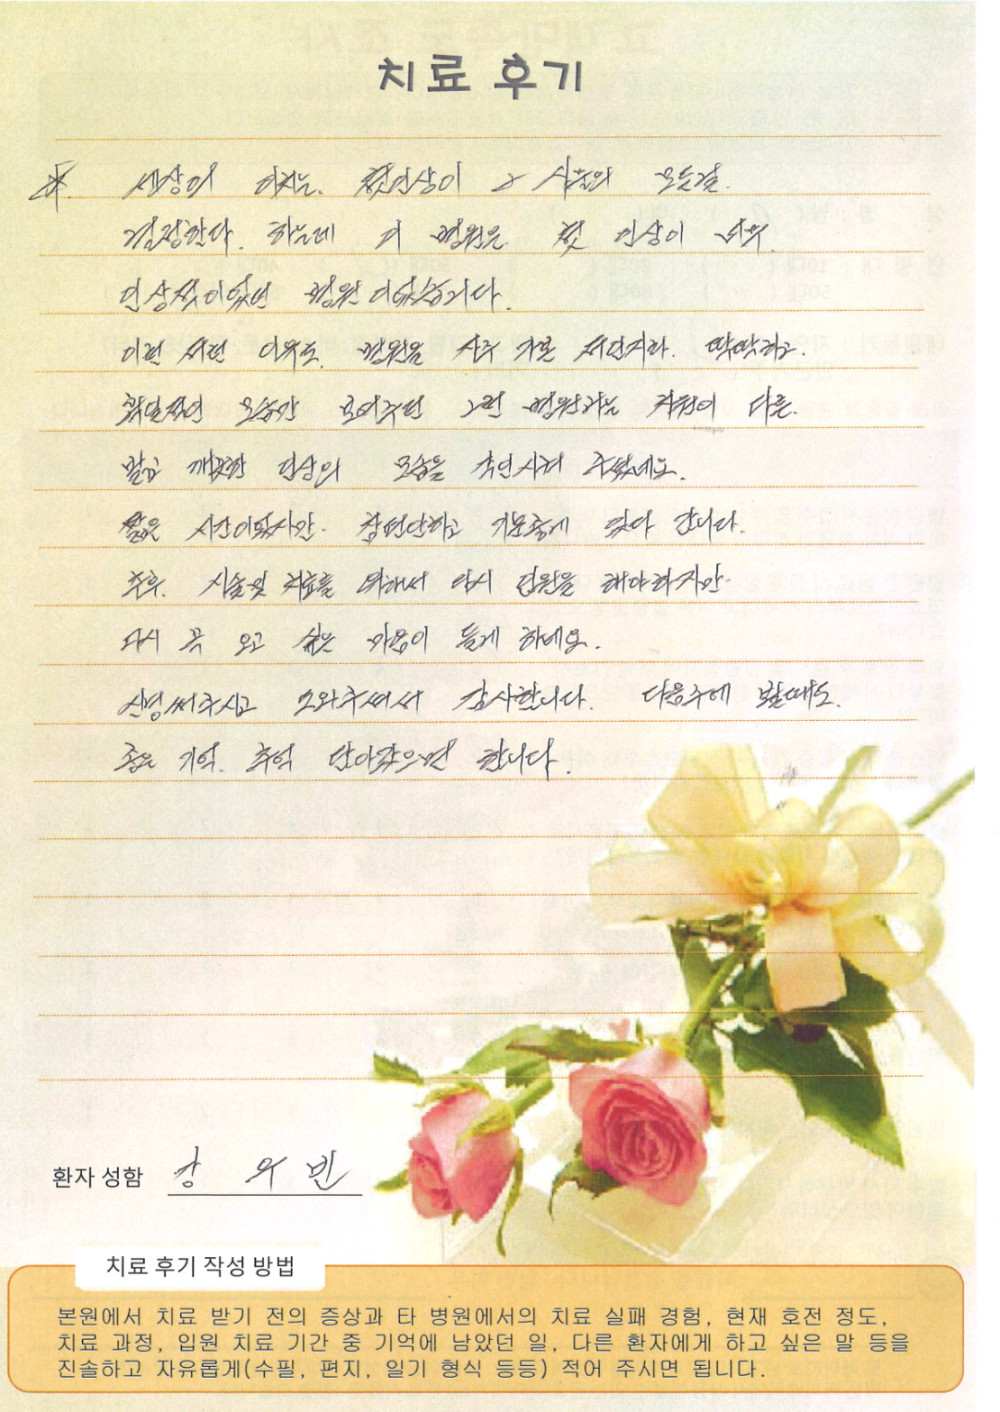 치료 후기
※ 세상의 이치는. 첫인상이 그 사람의 모든걸.
결정한다. 하는데 이 병원은 첫 인상이 너무
인상적이었던 병원이었습니다.
이런 저런 이유로. 병원을 자주 가본 저인지라. 딱딱하고.
획일적인 모습만 보여주던 그런 병원과는 차원이 다른.
밝고 깨끗한 인상의 모습을 각인시켜 주셨네요.
짧은 시간이었지만. 참 편안하고 기분좋게 있다 갑니다.
추후. 시술및 치료를 위해서 다시 입원을 해야하지만.
다시 꼭 오고 싶은 마음이 들게 하네요.
신경써주시고 도와주셔서 감사합니다. 다음주에 뵐때도.
좋은 기억. 추억 담아갔으면 합니다.
환자 성함 강 빈
치료 후기 작성 방법
본원에서 치료 받기 전의 증상과 타 병원에서의 치료 실패 경험, 현재 호전 정도,
치료 과정, 입원 치료 기간 중 기억에 남았던 일, 다른 환자에게 하고 싶은 말 등을
진솔하고 자유롭게(수필, 편지, 일기 형식 등등) 적어 주시면 됩니다.